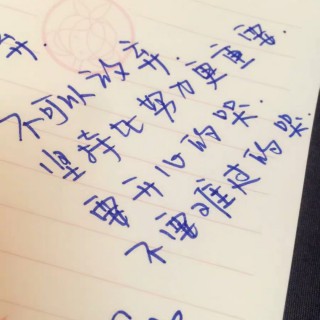 弃.
不可以放弃.
坚持比努力更重要.
要开心的
不要难过的